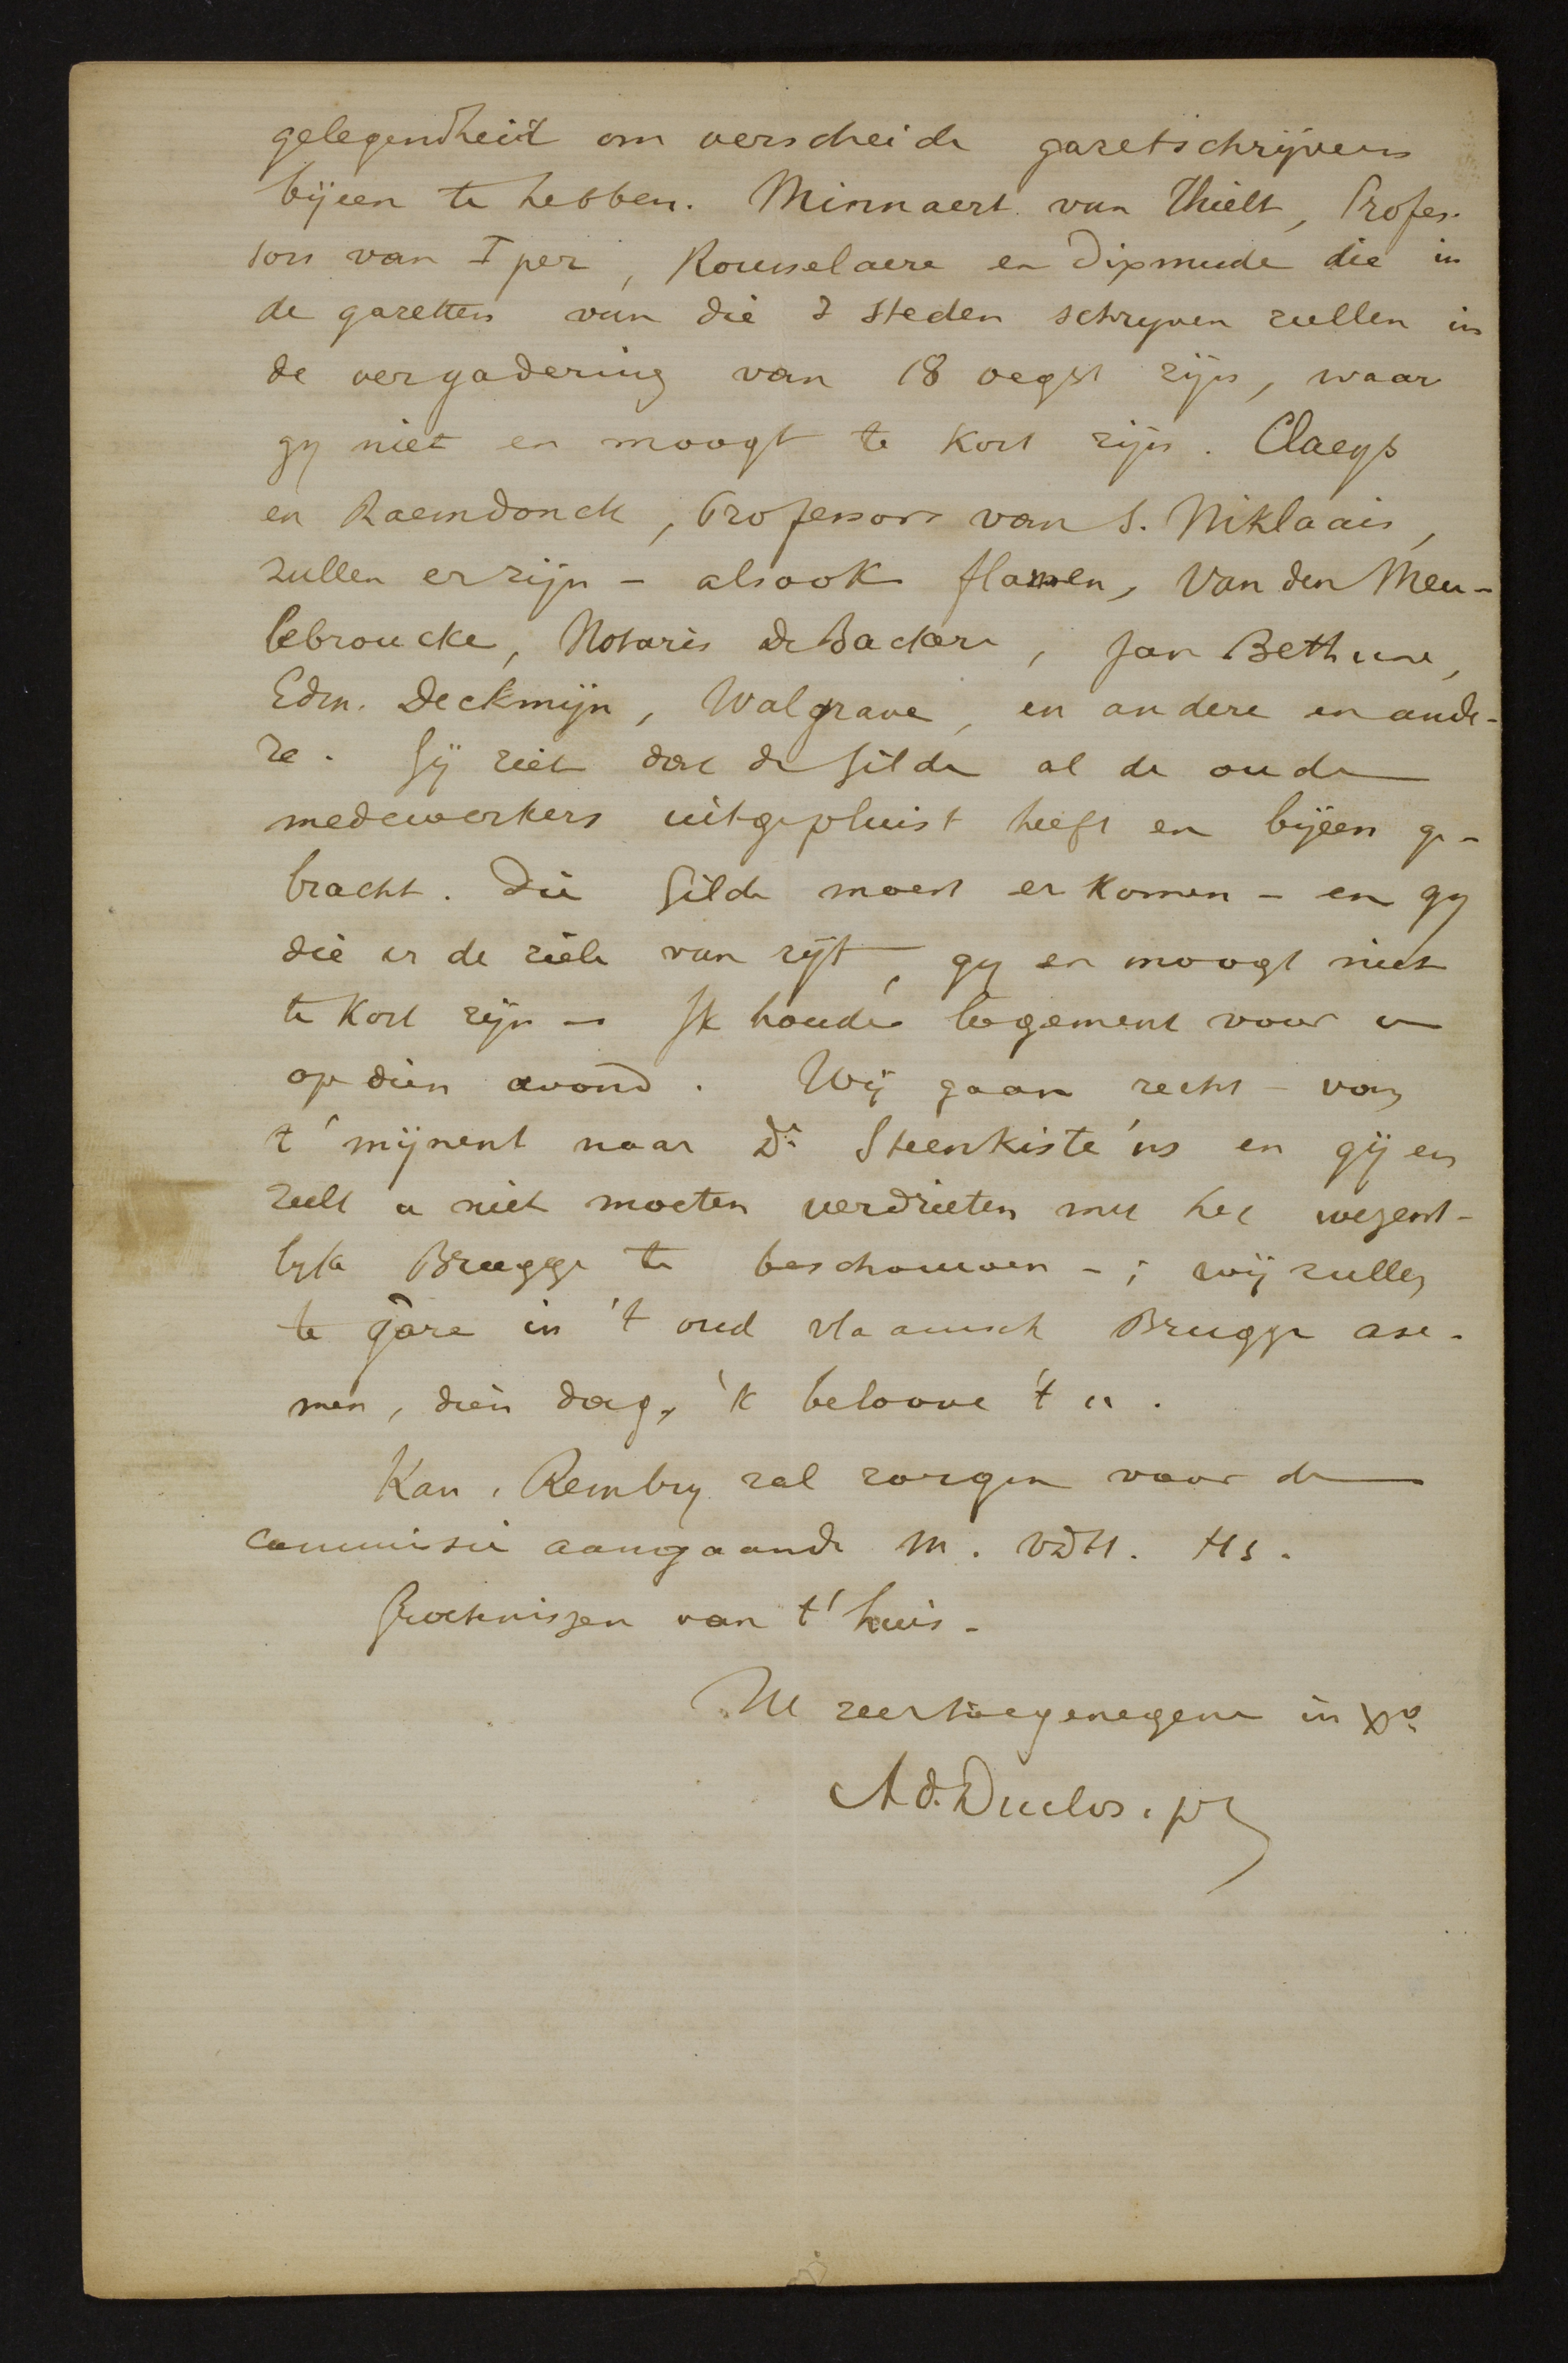 gelegendheid om verscheide gazetschrijvers
bijeen te hebben. Minnaert van Thielt, Profes-
sors van Iper, Rousselaere en Dixmude die in
de gazetten van die 3 steden schryven zullen in
de vergadering van 18 oegst zijn, waar
gy niet en moogt te kort zijn. Claeys
en Raemdonck, Professors van S. Niklaais,
zullen er zijn - alsook flamen, Van den Meu-
lebroucke, Notaris de Backere, Jan Bethune,
Edm. Deckmijn, Walgrave, en andere en ande-
re. Gij ziet dat de Gilde al de oude
medewerkers uitgepluist heeft en bijeen ge-
bracht. Die Gilde moest er komen - en gy
die er de ziele van zijt, gy en moogt niet
te kort zijn - Ik houde logement voor u
op dien avond. Wij gaan recht - van
t' mijnent naar Dr Steenkiste'ns en gij en
zult u niet moeten verdrieten met het wezent-
lyk Brugge te beschouwen - ; wij zullen
te gâre in 't oud vlaamsch Brugge ase-
men, dien dag, 'k beloove 't u.
Kan. Rembry zal zorgen voor de
commissie aangaande M. VDH. Hs.
Groetenissen van t' huis.
Ul zeer toegenegene in Xo
Ad. Duclos. pr